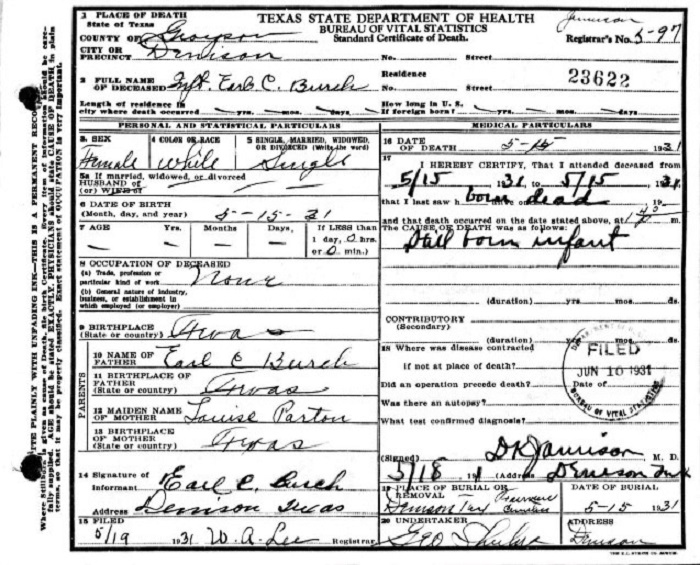 1 PLACE OF DEATH
State of Texas
COUNTY OF Grayson
CITY OR
PRECINCT Denison
TEXAS STATE DEPARTMENT OF HEALTH
BUREAU OF VITAL STATISTICS
Standard Certificate of Death.
Jamison
Registrar's No. 5-97
No. Street
2 FULL NAME
OF DECEASED Inft. Earl C. Burch
Residence
No. Street
23622
Length of residence in
city where death occurred yrs. mos. days
How long in U. S.
if foreign born? yrs. mos. days
PERSONAL AND STATISTICAL PARTICULARS
3. SEX
Female
4 COLOR OR RACE
White
5 SINGLE, MARRIED, WIDOWED,
OR DIVORCED (Write the word)
Single
5a If married, widowed, or divorced
HUSBAND OF
(or) WIFE OF
6 DATE OF BIRTH
(Month, day, and year) 5-15-31
7 AGE Yrs. Months Days, If LESS than
1 day, 0 hrs.
or 0 min.)
8 OCCUPATION OF DECEASED
(a) Trade, profession or
particular kind of work None
(b) General nature of industry,
business, or establishment in
which employed (or employer)
9 BIRTHPLACE
(State or country) Texas
PARENTS
10 NAME OF
FATHER Earl C Burch
11 BIRTHPLACE OF
FATHER
(State or country) Texas
12 MAIDEN NAME
OF MOTHER Louise Parton
13 BIRTHPLACE
OF MOTHER
(State or country) Texas
14 Signature of
Informant Earl C. Burch
Address Denison Texas
15 FILED
5/19 1931 W. A. Lee Registrar
MEDICAL PARTICULARS
16 DATE
OF DEATH 5-15 1931
17
I HEREBY CERTIFY, That I attended deceased from
5/15 1931 to 5/15 1931
that I last saw h born dead 19
and that death occurred on the date stated above, at
The CAUSE OF DEATH was as follows:
Still born infant
(duration) yrs. mos. ds.
CONTRIBUTORY
(Secondary)
(duration) yrs. mos. ds.
18 Where was disease contracted
if not at place of death?
Did an operation precede death? Date of
Was there an autopsy?
What test confirmed diagnosis?
FILED
JUN 10 1931
BUREAU OF VITAL STATISTICS
(Signed) Jamison M. D.
5/18 (Address) Denison
19 PLACE OF BURIAL OR
REMOVAL
Denison Tex
DATE OF BURIAL
5-15 1931
20 UNDERTAKER
Geo
ADDRESS
Denison